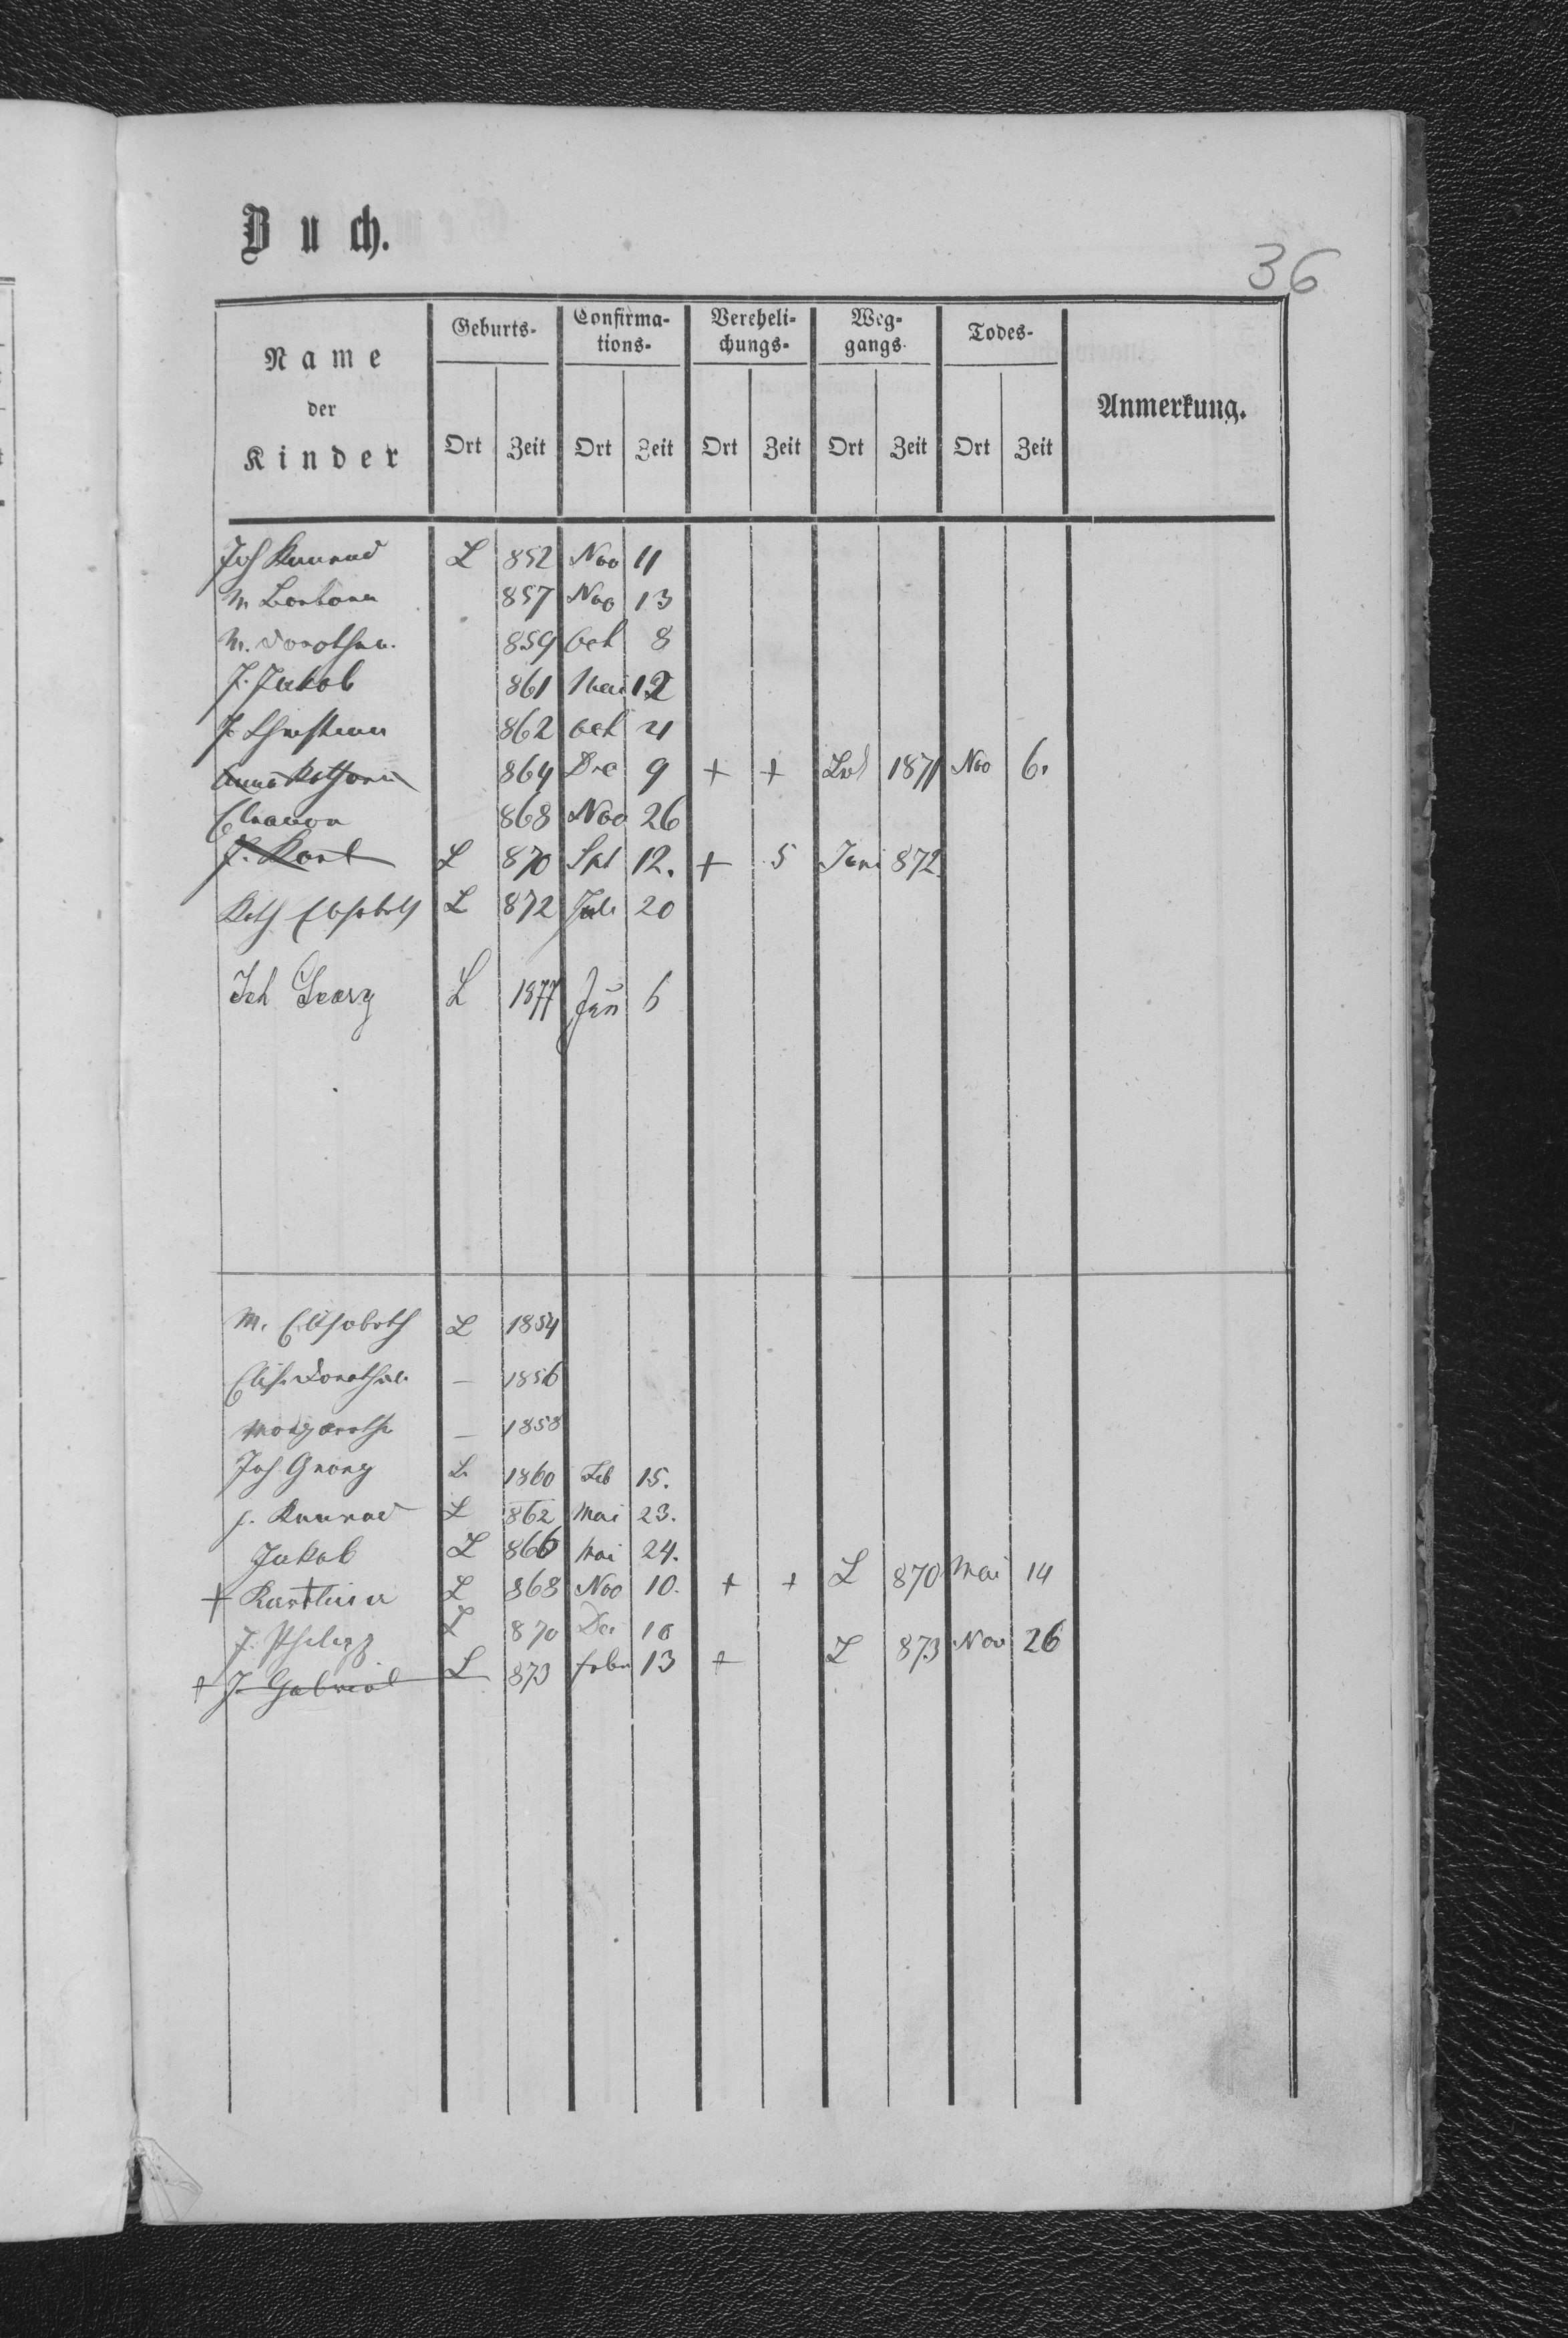 Buch.
36
Name der Kinder | Geburts- | Confirma-tions- | Vereheli-chungs- | Weg-gangs- | Todes- | Anmerkung.
Ort Zeit Ort Zeit Ort Zeit Ort Zeit Ort Zeit
Joh Konrad L 852 Nov 11
M Barbara 857 Nov 13
M. Dorothea. 859 Oct 8
J. Jakob 861 Mai 12
J Christian 862 Oct 21
Anna Katharin 864 Dec 9 + + 1871 Nov 6.
Eleanora 868 Nov 26
J. Karl L 870 Spt 12. + 5 Juni 872.
Kath Elisabeth L 872 Juli 20
Joh Georg L 1877 Jun 6
M. Elisabeth L 1854
Elis. Dorothea. — 1856
Margarethe — 1858
Joh. Georg L. 1860 Feb 15.
J. Konrad L 862 Mai 23.
Jakob L 866 Mai 24.
+ L 868 Nov 10. + + L 870 Mai 14
J. Philipp L 870 Dec 16
+ J. Gabriel L 873 Febr 13 + L 873 Nov 26